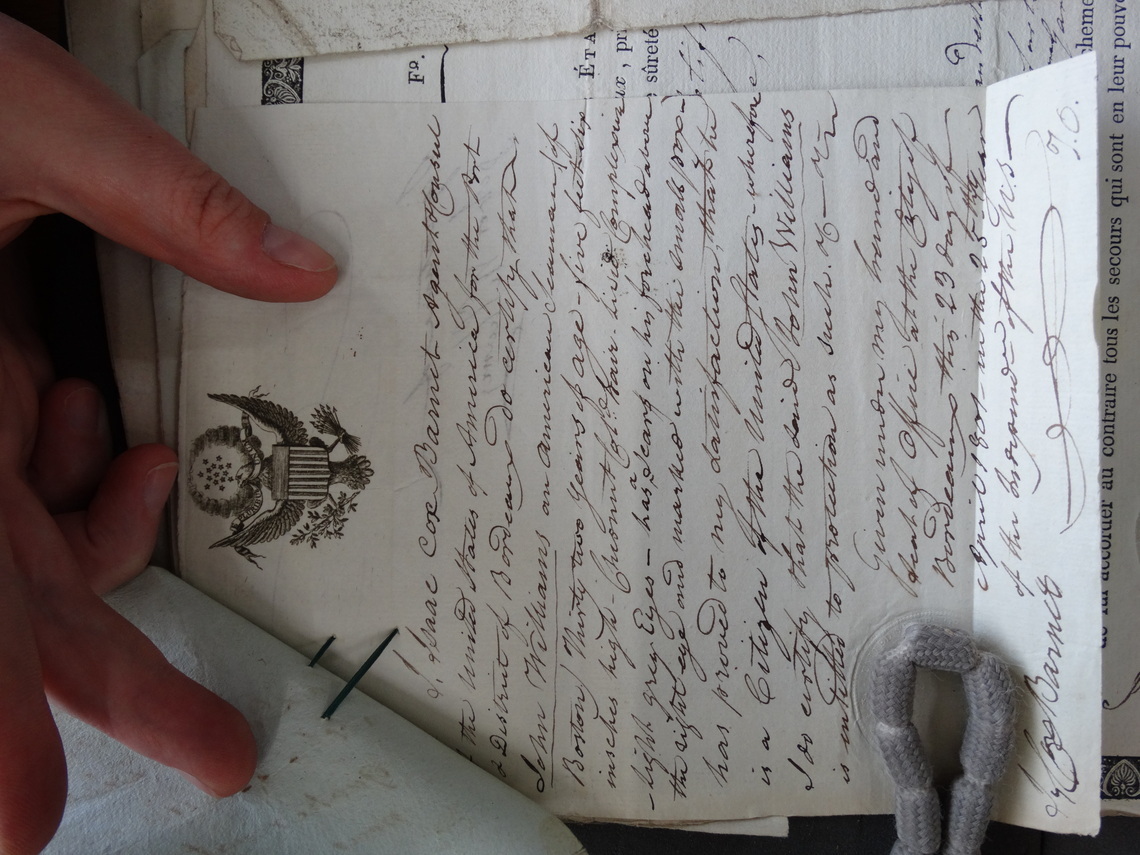 I, Isaac Cox Barnet Agent & Consul
the United States of America for the Port
& District of Bordeaux do certify that
John Williams an american Seaman (of
Boston) Thirty two years of age - five feet six
insches high - Chesnut Col.d hair - Complexion
- light grey Eyes - has a Scarf on his forehead above
the right eye and marked with the small pox -
has proved to my Satisfaction, that he
is a Citizen of the United States - wherefore
I do certify that the said John Williams
is entitled to protection as such.
Given under my hand and
Seal of Office at the City of
Bordeaux this 23 day of
April 1801 - in the 25th Year
of the Independ.ce of the U.S -
Cox Barnet
F.o.
ÉTA
ux, pri
sûreté
cheme
de lui accorder au contraire tous les secours qui sont en leur pouvo